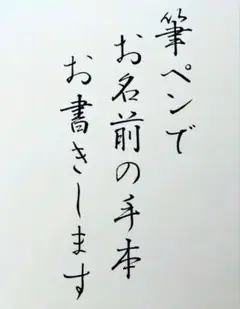 筆ペンで
お名前の手本
お書きします